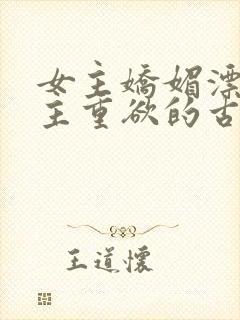 女主嬌媚漂
主重欲的古
王道懷